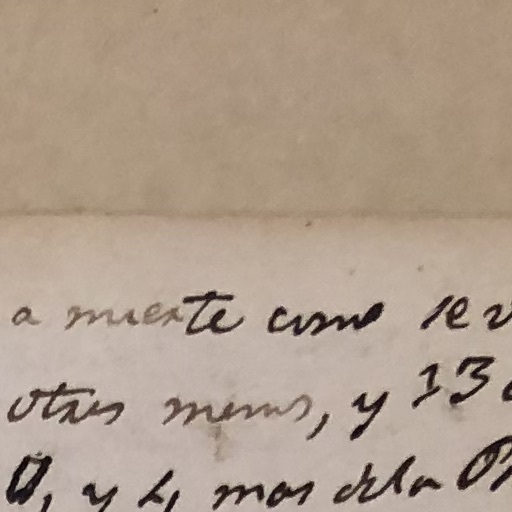 a muerte como se v
otros menos, y 13
, y 4, mas de la